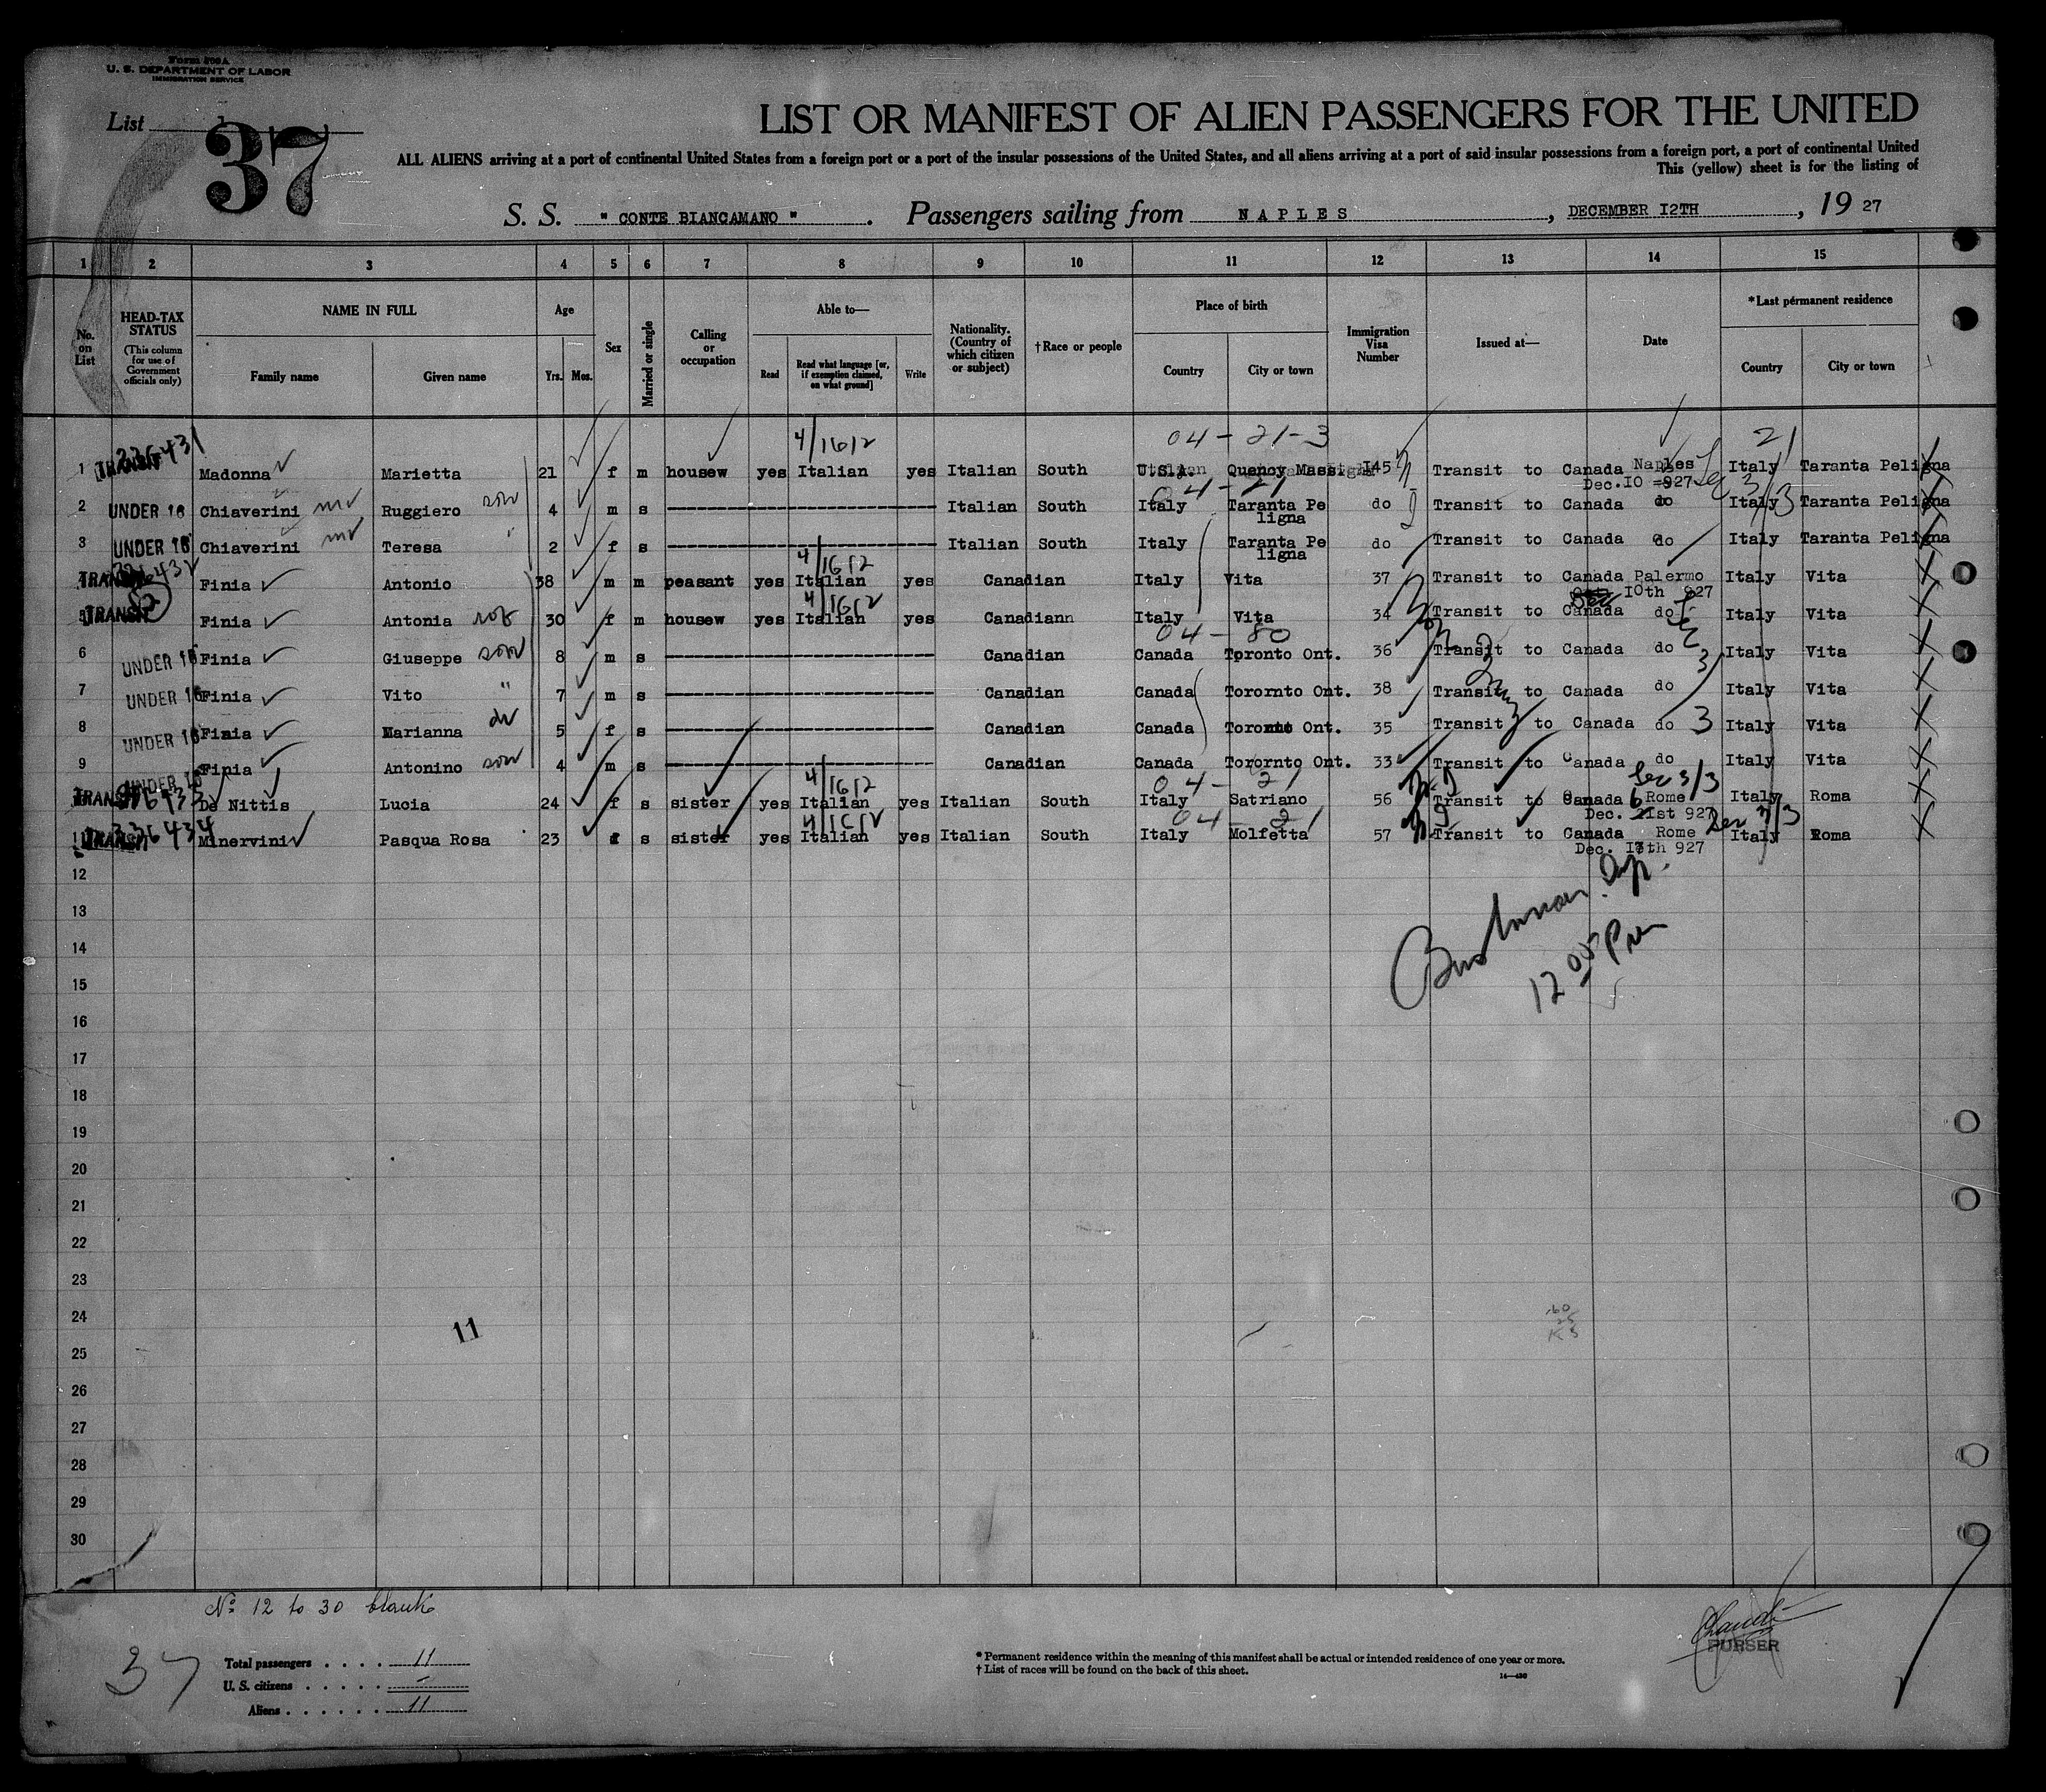 Form 500A
U. S. DEPARTMENT OF LABOR
IMMIGRATION SERVICE
List 1
37
LIST OR MANIFEST OF ALIEN PASSENGERS FOR THE UNITED
ALL ALIENS arriving at a port of continental United States from a foreign port or a port of the insular possessions of the United States, and all aliens arriving at a port of said insular possessions from a foreign port, a port of continental United
This (yellow) sheet is for the listing of
S. S. " CONTE BIANCAMANO " . Passengers sailing from N A P L E S , DECEMBER I2TH , 19 27
1 2 3 4 5 6 7 8 9 10 11 12 13 14 15
No. on List
HEAD-TAX STATUS (This column for use of Government officials only)
NAME IN FULL
Family name Given name
Age
Yrs. Mos.
Sex
Married or single
Calling or occupation
Able to—
Read Read what language [or, if exemption claimed, on what ground] Write
Nationality. (Country of which citizen or subject)
†Race or people
Place of birth
Country City or town
Immigration Visa Number
Issued at—
Date
*Last permanent residence
Country City or town
4/1612 04 - 21-3 21
1 TRANSIT Madonna Marietta 21 f m housew yes Italian yes Italian South U.S.A. Quency Mass. I45 Transit to Canada Naples Italy Taranta Peligna
Dec.IO 927
04 - 21
2 UNDER 16 Chiaverini Ruggiero son 4 m s Italian South Italy Taranta Pe do Transit to Canada do Italy Taranta Peligna
ligna
3 UNDER 16 Chiaverini Teresa " 2 f s Italian South Italy Taranta Pe do Transit to Canada do Italy Taranta Peligna
ligna
4/1612
4 TRANSIT Finia Antonio 38 m m peasant yes Italian yes Canadian Italy Vita 37 Transit to Canada Palermo Italy Vita
Dec IOth 927
4/1612
5 TRANSIT Finia Antonia 30 f m housew yes Italian yes Canadiann Italy Vita 34 Transit to Canada do Italy Vita
04 - 80
6 UNDER 16 Finia Giuseppe son 8 m s Canadian Canada Toronto Ont. 36 Transit to Canada do Italy Vita
7 UNDER 16 Finia Vito " 7 m s Canadian Canada Torornto Ont. 38 Transit to Canada do Italy Vita
8 UNDER 16 Finia Marianna 5 f s Canadian Canada Toronto Ont. 35 Transit to Canada do Italy Vita
9 UNDER 16 Finia Antonino son 4 m s Canadian Canada Torornto Ont. 33 Transit to Canada do Italy Vita
4/1612 04 - 21 Dec 3/3
10 TRANSIT De Nittis Lucia 24 f s sister yes Italian yes Italian South Italy Satriano 56 Transit to Canada Rome Italy Roma
Dec. 21st 927
4/1612 04 - 21 3/3
11 TRANSIT 336434 Minervini Pasqua Rosa 23 f s sister yes Italian yes Italian South Italy Molfetta 57 Transit to Canada Rome Italy Roma
Dec. I7th 927
12
13
14
15
12 00 Pm
16
17
18
19
20
21
22
23
24
11
25
26
27
28
29
30
No 12 to 30 blank
37
Total passengers . . . . 11
U. S. citizens . . . . . –
Aliens . . . . . . 11
* Permanent residence within the meaning of this manifest shall be actual or intended residence of one year or more.
† List of races will be found on the back of this sheet.
PURSER